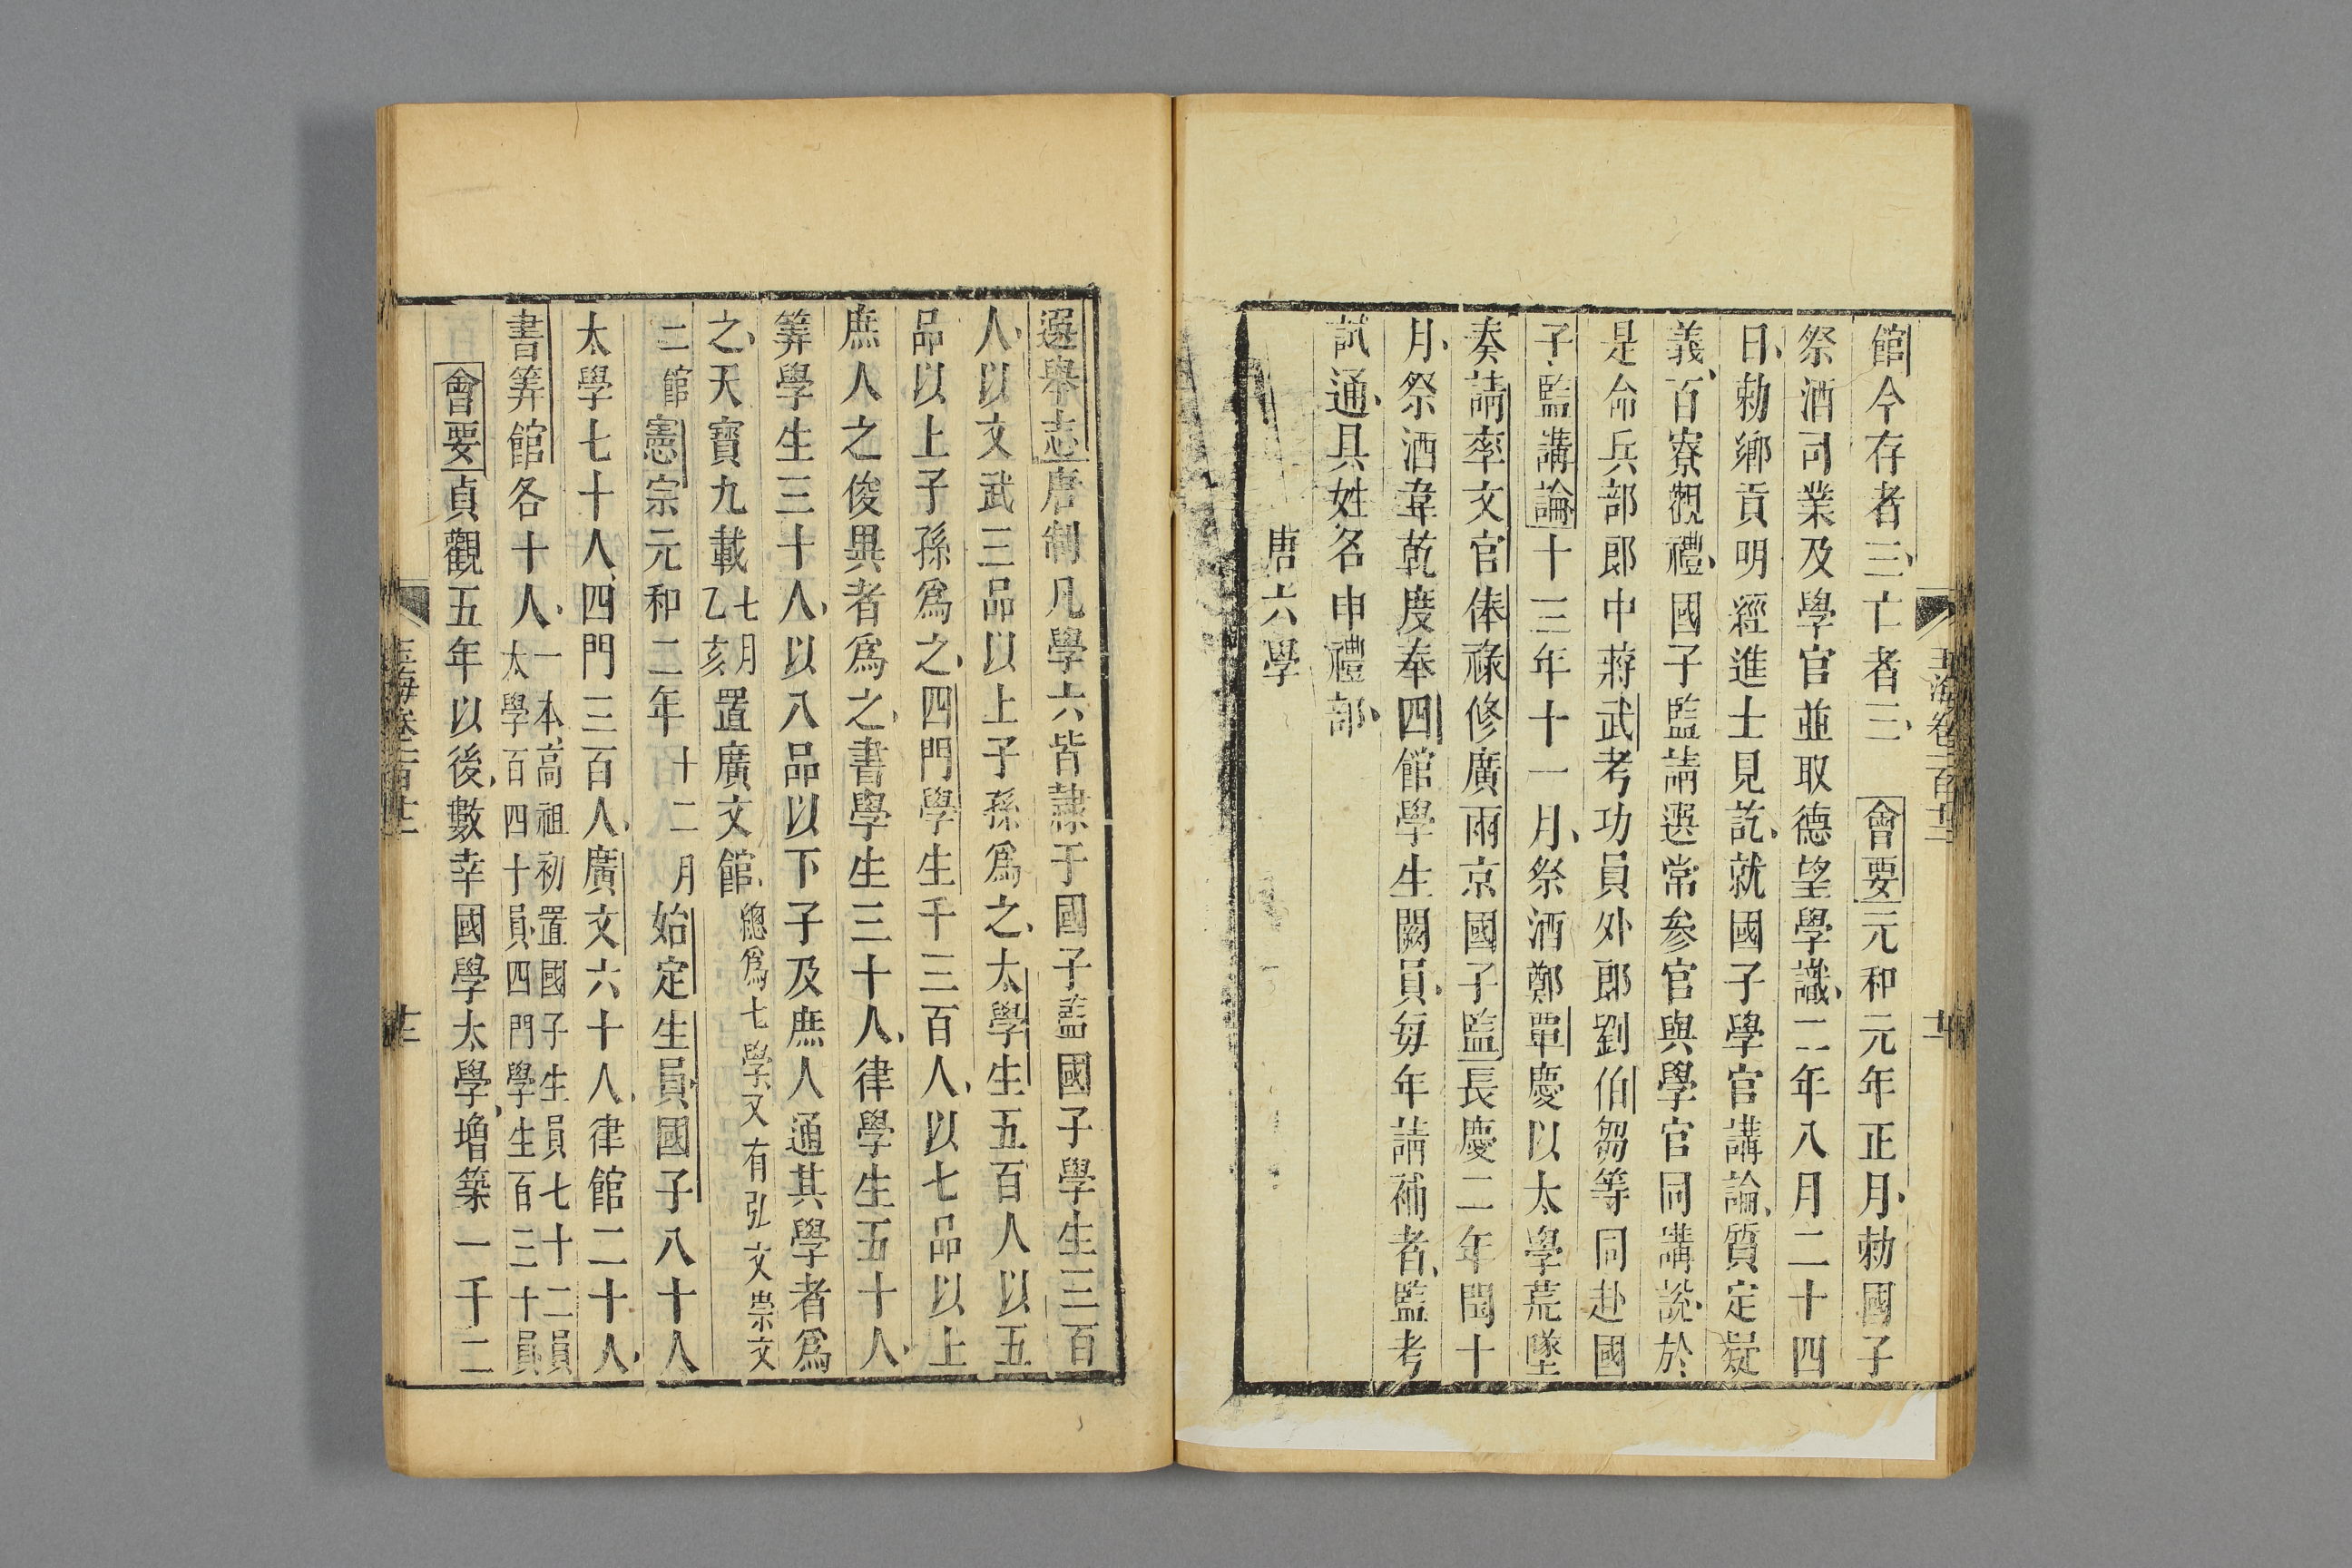 玉海卷一百十二
十二
館今存者三亡者三 會要元和元年正月勅國子
祭酒司業及學官並取德望學識二年八月二十四
日勅鄉貢明經進士見訖就國子學官講論質定疑
義百寮觀禮國子監請選常參官與學官同講說於
是命兵部郎中蔣武考功員外郎劉伯芻等同赴國
子監講論十三年十一月祭酒鄭覃慶以太學荒墜
奏請率文官俸祿修廣兩京國子監長慶二年閏十
月祭酒韋乾度奉四館學生闕員每年請補者監考
試通具姓名申禮部
唐六學
選舉志唐制凡學六皆隸于國子監國子學生三百
人以文武三品以上子孫爲之太學生五百人以五
品以上子孫爲之四門學生千三百人以七品以上
庶人之俊異者爲之書學生三十人律學生五十人
筭學生三十人以八品以下子及庶人通其學者爲
之天寶九載七月乙亥置廣文館總爲七學又有弘文崇文
二館憲宗元和二年十二月始定生員國子八十人
太學七十人四門三百人廣文六十人律館二十人
書筭館各十人一本高祖初置國子生員七十二員太學百四十員四門學生百三十員
會要貞觀五年以後數幸國學太學增築一千二
玉海卷一百十二
十三